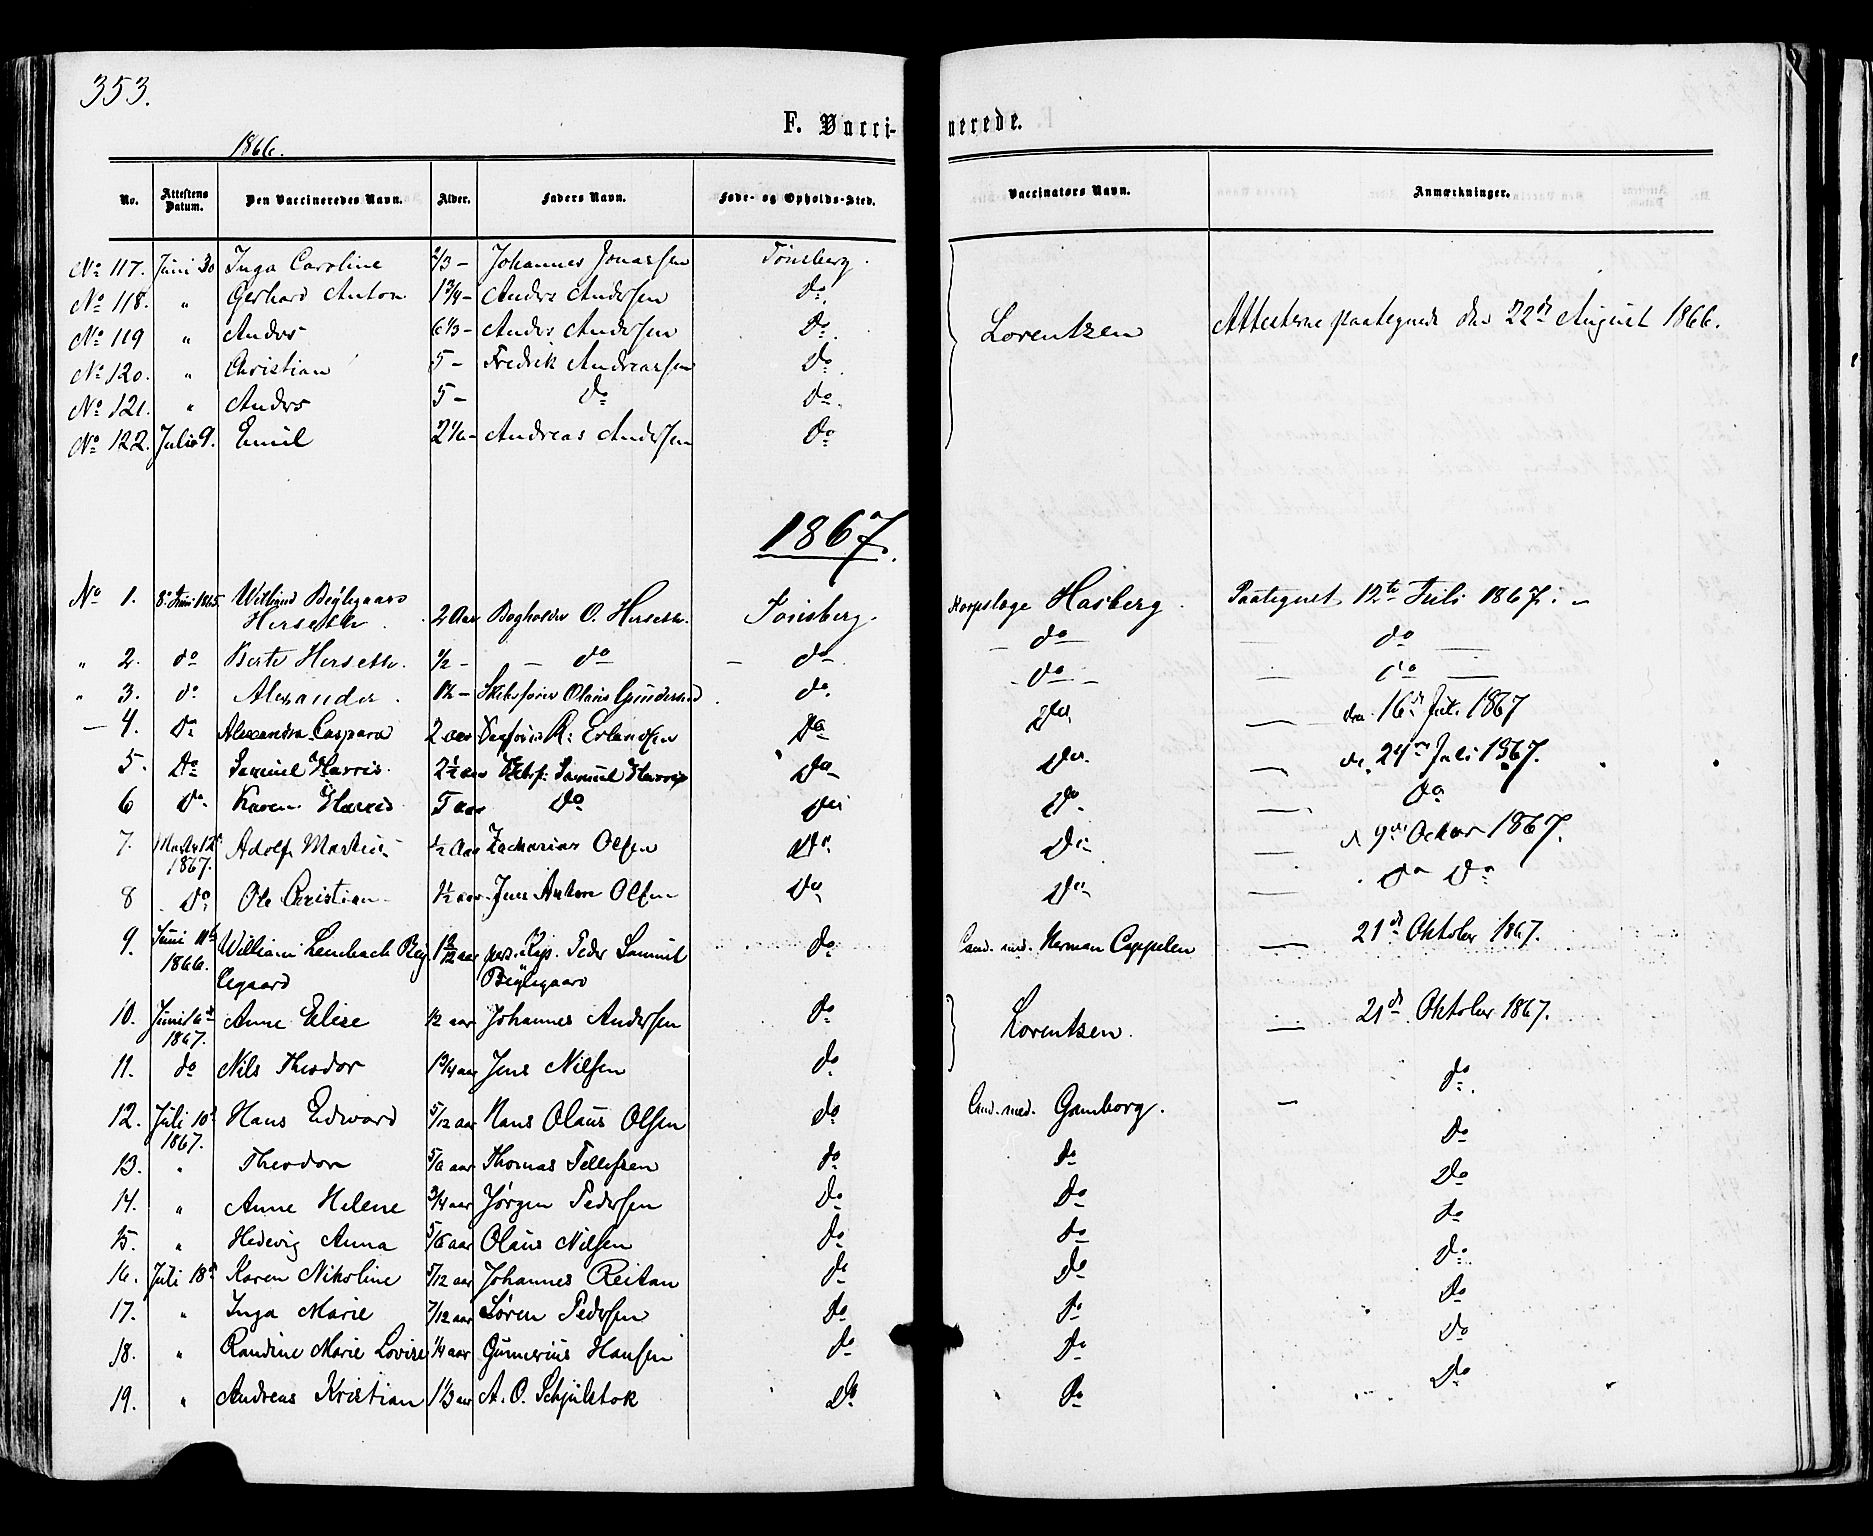 353.
F. Vaccinerede.
1866.
No. Attestens Datum. Den Vaccineredes Navn. Alder. Faders Navn. Føde- og Opholds-Sted. Vaccinators Navn. Anmærkninger.
No 117. Juni 30 Inga Caroline 2/3 - Johannes Jonassen Tønsberg.
No 118. " Gerhard Anton 1 3/4 - Anders Andersen Do
No 119 " Anders 6 1/3 - Anders Andersen Do Lorentzen Attesterne paategnede den 22de August 1866.
No 120. " Christian 5 - Fredrik Andreassen Do
No 121. " Anders 5 - do do
No 122. Juli 9. Emil 2 1/2 - Andreas Andersen Do
1867.
No 1. 8de Juni 1865. Bøylegaard
Herseth. 2 Aar Bogholder O. Herseth. Tønsberg. Korpslæge Hasberg. Paategnet 12te Juli 1867.
" 2. do Herseth. 1/2 - do do do do
" 3. do Alexander 1 1/2 - Skibsfører Olaus Gundersen do do do
- 4. Do Alexandra Caspara 2 aar R. Erlandsen Do Do den 16de Juli 1867
5. Do Samuel Harris. 2 1/2 aar Skbsf. Samuel Harris Do Do d. 24de Juli 1867.
6 Do Karen Harris 5 aar Do Do Do Do
7. 12te
1867. Adolf Martin 1/2 Aar Zacharias Olsen Do Do d 9de Octbr 1867.
8 Do Ole Christian 1 1/2 aar Jens Anton Olsen Do Do Do Do
9. Juni 11te
1866. William Lembach Bøy-
legaard 1 2/12 aar Kap. Peder Samuel
Bøylegaard do Cand. med. Herman Cappelen 21de Oktober 1867.
10. Juni 6te
1867. Anne Elise 1/2 aar Johannes Andersen do Lorentzen. 21de Oktober 1867.
11. do Nils Theodor 1 3/4 aar Jens Nilsen do do
12. Juli 10de
1867. Hans Edvard 5/12 aar Hans Olaus Olsen do Cand. med. Gamborg. Do
13. " Theodor 5/6 aar Thomas Tellefsen do do Do
14. " Anne Helene 3/4 aar Jørgen Pedersen Do Do do
15. " Hedevig Anna 5/6 aar Olaus Nilsen do do do
16. Juli 18de Karen Nikoline 5/12 aar Johannes Reitan do Do Do
17. " Inga Marie 7/12 aar Søren Pedersen do do Do
18. " Randine Marie Lovise 1/4 aar Gunnerius Hansen do Do Do
19. " Andreas Kristian 1 1/3 aar A. O. Schjulstok Do Do